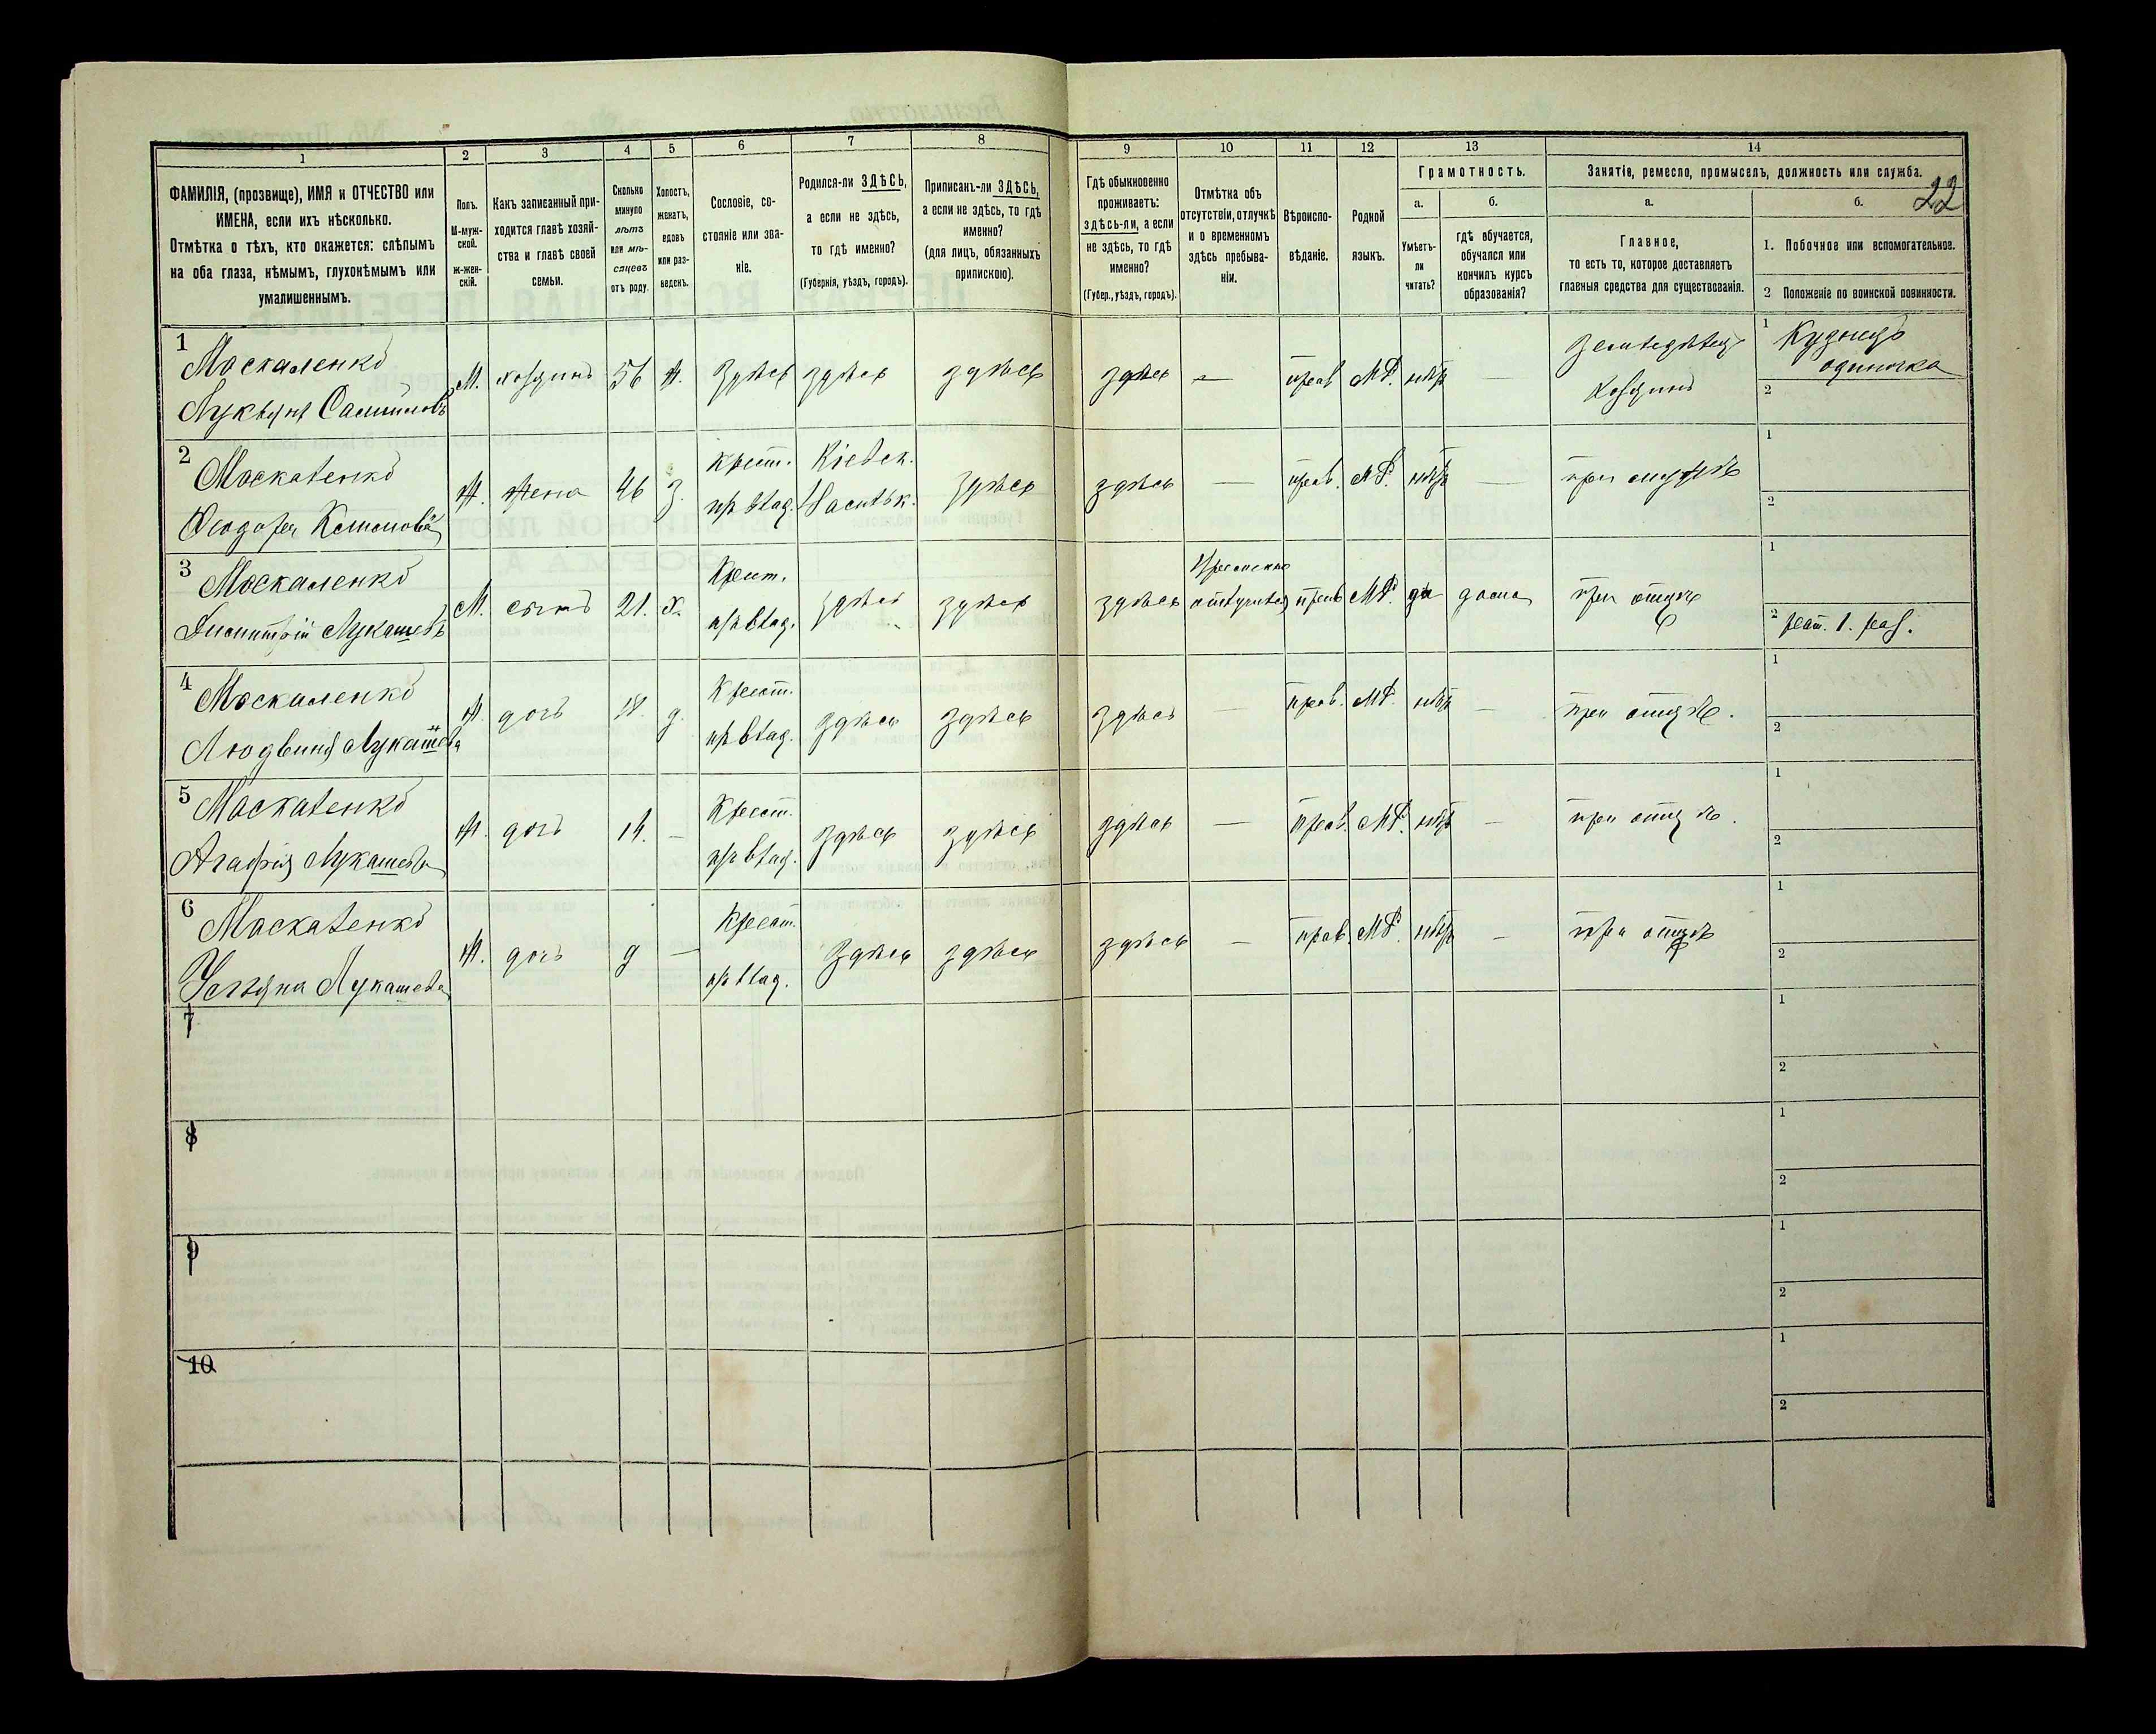 22
1 2 3 4 5 6 7 8 9 10 11 12 13 14
ФАМИЛІЯ, (прозвище), ИМЯ и ОТЧЕСТВО или
ИМЕНА, если ихъ нѣсколько.
Отмѣтка о тѣхъ, кто окажется: слѣпымъ
на оба глаза, нѣмымъ, глухонѣмымъ или
умалишеннымъ.
Полъ.
М-муж-
ской.
ж-жен-
скій.
Какъ записанный при-
ходится главѣ хозяй-
ства и главѣ своей
семьи.
Сколько
минуло
лѣтъ
или мѣ-
сяцевъ
отъ роду.
Холостъ,
женатъ,
вдовъ
или раз-
веденъ.
Сословіе, со-
стояніе или зва-
ніе.
Родился-ли ЗДѢСЬ,
а если не здѣсь,
то гдѣ именно?
(Губернія, уѣздъ, городъ).
Приписанъ-ли ЗДѢСЬ,
а если не здѣсь, то гдѣ
именно?
(для лицъ, обязанныхъ
припискою).
Гдѣ обыкновенно
проживаетъ:
здѣсь-ли, а если
не здѣсь, то гдѣ
именно?
(Губер., уѣздъ, городъ).
Отмѣтка объ
отсутствіи, отлучкѣ
и о временномъ
здѣсь пребыва-
ніи.
Вѣроиспо-
вѣданіе.
Родной
языкъ.
Грамотность.
а.
Умѣетъ-
ли
читать?
б.
гдѣ обучается,
обучался или
кончилъ курсъ
образованія?
Занятіе, ремесло, промыселъ, должность или служба.
а.
Главное,
то есть то, которое доставляетъ
главныя средства для существованія.
б.
1. Побочное или вспомогательное.
2 Положеніе по воинской повинности.
1 Москаленко
М. хозяинъ 56 ж. здѣсь здѣсь здѣсь здѣсь — прав МР. нѣтъ — Хозяинъ
1 Кузнецъ
одиночка
2
2 Москаленко
Ж. жена 46 з. крест. Кіевск. здѣсь здѣсь — прав. МР. нѣтъ — при мужѣ
1
2
3 Москаленко
Димитрій Лукашевъ
М. сынъ 21. х. Крест. здѣсь здѣсь здѣсь прав МР да дома при отцѣ
1
2
4 Москаленко
ж. дочь 18. д. Крест. здѣсь здѣсь здѣсь — прав. МР. нѣтъ — при отцѣ.
1
2
5 Москаленко
Агафія Лукашева
ж. дочь 14. — Крест. здѣсь здѣсь здѣсь — прав. МР. нѣтъ — при отцѣ.
1
2
6 Москаленко
Устяна Лукашева
ж. дочь — Крест. здѣсь здѣсь здѣсь — прав. МР. нѣтъ — при отцѣ
1
2
7
1
2
8
1
2
9
1
2
10
1
2